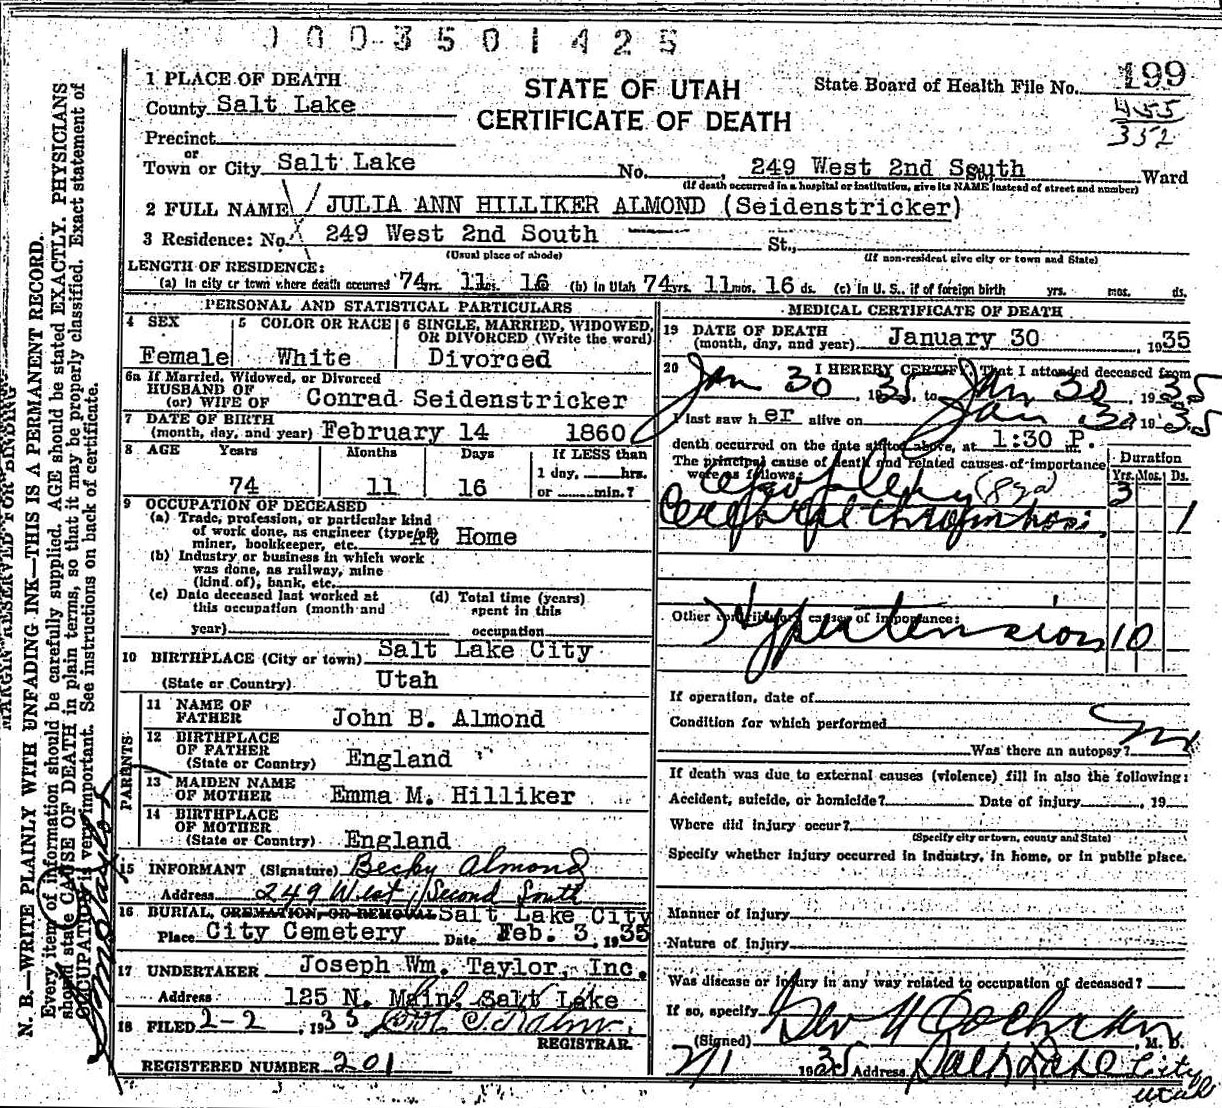 1003501425
1 PLACE OF DEATH
STATE OF UTAH
CERTIFICATE OF DEATH
State Board of Health File No. 199
455
352
County Salt Lake
Precinct
or
Town or City Salt Lake No. , 249 West 2nd South Ward
(If death occurred in a hospital or institution, give its NAME instead of street and number)
2 FULL NAME JULIA ANN HILLIKER ALMOND (Seidenstricker)
3 Residence: No. 249 West 2nd South St.,
(Usual place of abode) (If non-resident give city or town and State)
LENGTH OF RESIDENCE:
(a) In city or town where death occurred 74 yrs. 11 mos. 16 (b) In Utah 74 yrs. 11 mos. 16 ds. (c) In U.S., if of foreign birth yrs. mos. ds.
PERSONAL AND STATISTICAL PARTICULARS
4 SEX Female
5 COLOR OR RACE White
6 SINGLE, MARRIED, WIDOWED, OR DIVORCED (Write the word) Divorced
6a If Married, Widowed, or Divorced
HUSBAND OF
(or) WIFE OF Conrad Seidenstricker
7 DATE OF BIRTH
(month, day, and year) February 14 1860
8 AGE Years Months Days If LESS than
1 day, hrs.
74 11 16 or min.?
9 OCCUPATION OF DECEASED
(a) Trade, profession, or particular kind
of work done, as engineer (type of)
miner, bookkeeper, etc. At Home
(b) Industry or business in which work
was done, as railway, mine
(kind of), bank, etc.
(c) Date deceased last worked at
this occupation (month and
year)
(d) Total time (years)
spent in this
occupation
10 BIRTHPLACE (City or town) Salt Lake City
(State or Country) Utah
PARENTS
11 NAME OF
FATHER John B. Almond
12 BIRTHPLACE
OF FATHER
(State or Country) England
13 MAIDEN NAME
OF MOTHER Emma M. Hilliker
14 BIRTHPLACE
OF MOTHER
(State or Country) England
15 INFORMANT (Signature) Becky Almond
Address 249 West Second South
16 BURIAL, CREMATION, OR REMOVAL Salt Lake City
Place City Cemetery Date Feb. 3, 1935
17 UNDERTAKER Joseph Wm. Taylor, Inc.
Address 125 N. Main, Salt Lake
18 FILED 2-2, 1935
REGISTRAR.
REGISTERED NUMBER 201
MEDICAL CERTIFICATE OF DEATH
19 DATE OF DEATH
(month, day, and year) January 30, 1935
20 I HEREBY CERTIFY, That I attended deceased from
Jan 30, 1935, to Jan 30, 1935
I last saw her alive on Jan 30 1935
death occurred on the date stated above, at 1:30 P. m.
The principal cause of death and related causes of importance
were as follows:
Duration
Yrs. Mos. Ds.
Apoplexy (82a) 3
Cerebral thrombosis, 1
Other contributory causes of importance:
Hypertension 10
If operation, date of
Condition for which performed
Was there an autopsy? No
If death was due to external causes (violence) fill in also the following:
Accident, suicide, or homicide? Date of injury , 19
Where did injury occur?
(Specify city or town, county and State)
Specify whether injury occurred in industry, in home, or in public place.
Manner of Injury
Nature of Injury
Was disease or injury in any way related to occupation of deceased?
If so, specify
(Signed) Geo N Cochran, M. D.
2/1 1935 Address Salt Lake City
Utah
MARGIN RESERVED FOR BINDING
N. B.—WRITE PLAINLY WITH UNFADING INK—THIS IS A PERMANENT RECORD.
Every item of information should be carefully supplied. AGE should be stated EXACTLY. PHYSICIANS
should state CAUSE OF DEATH in plain terms, so that it may be properly classified. Exact statement of
OCCUPATION is very important. See instructions on back of certificate.